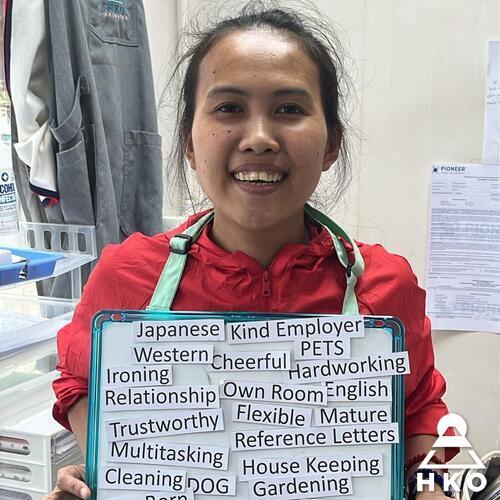 HKO
PIONEER
Japanese
Kind Employer
Western
Cheerful
PETS
Ironing
Hardworking
Relationship
Own Room
English
Trustworthy
Flexible
Mature
Multitasking
Reference Letters
Cleaning
DOG
House Keeping
Gardening
Born
HKO